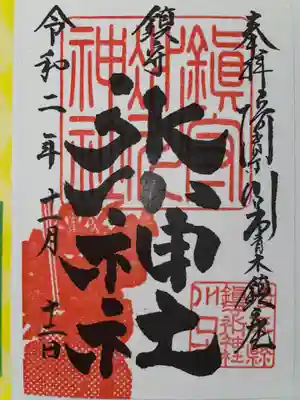 奉拝
青木鎮座
鎮守
氷川神社
令和二年十一月十二日
鎮守氷川神社